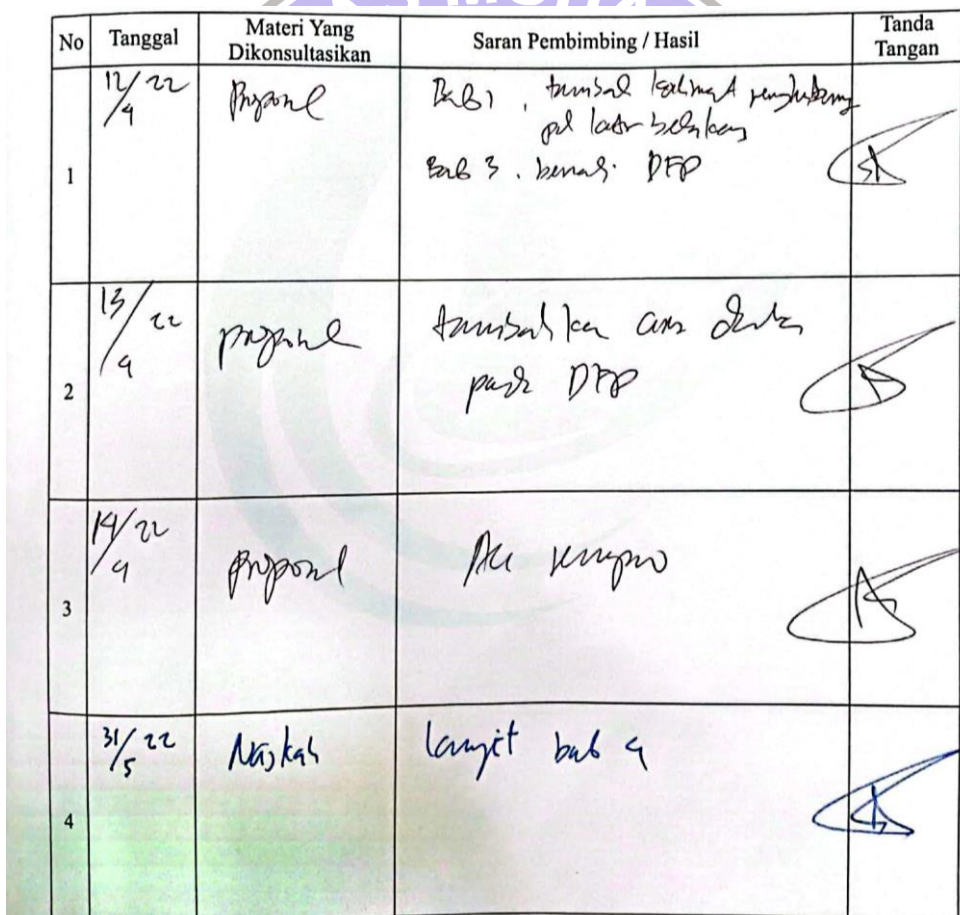 No Tanggal Materi Yang Dikonsultasikan Saran Pembimbing / Hasil Tanda Tangan
1 12/4 22 Proposal Bab 1, tambah kalimat penghubung
pd latar belakang
Bab 3. benahi DFD
2 13/4 22 proposal tambahkan
pada DFD
3 14/4 22 proposal Acc sempro
4 31/5 22 Naskah lanjut bab 4